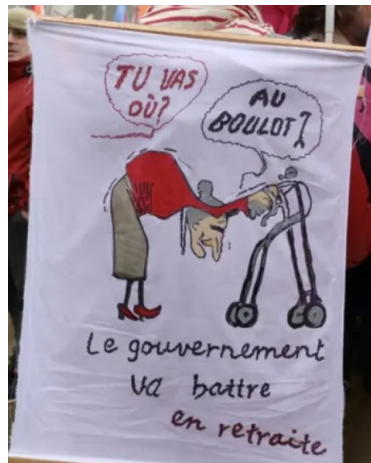 TU VAS
OÙ?
AU
BOULOT!
Le gouvernement
va battre
en retraite